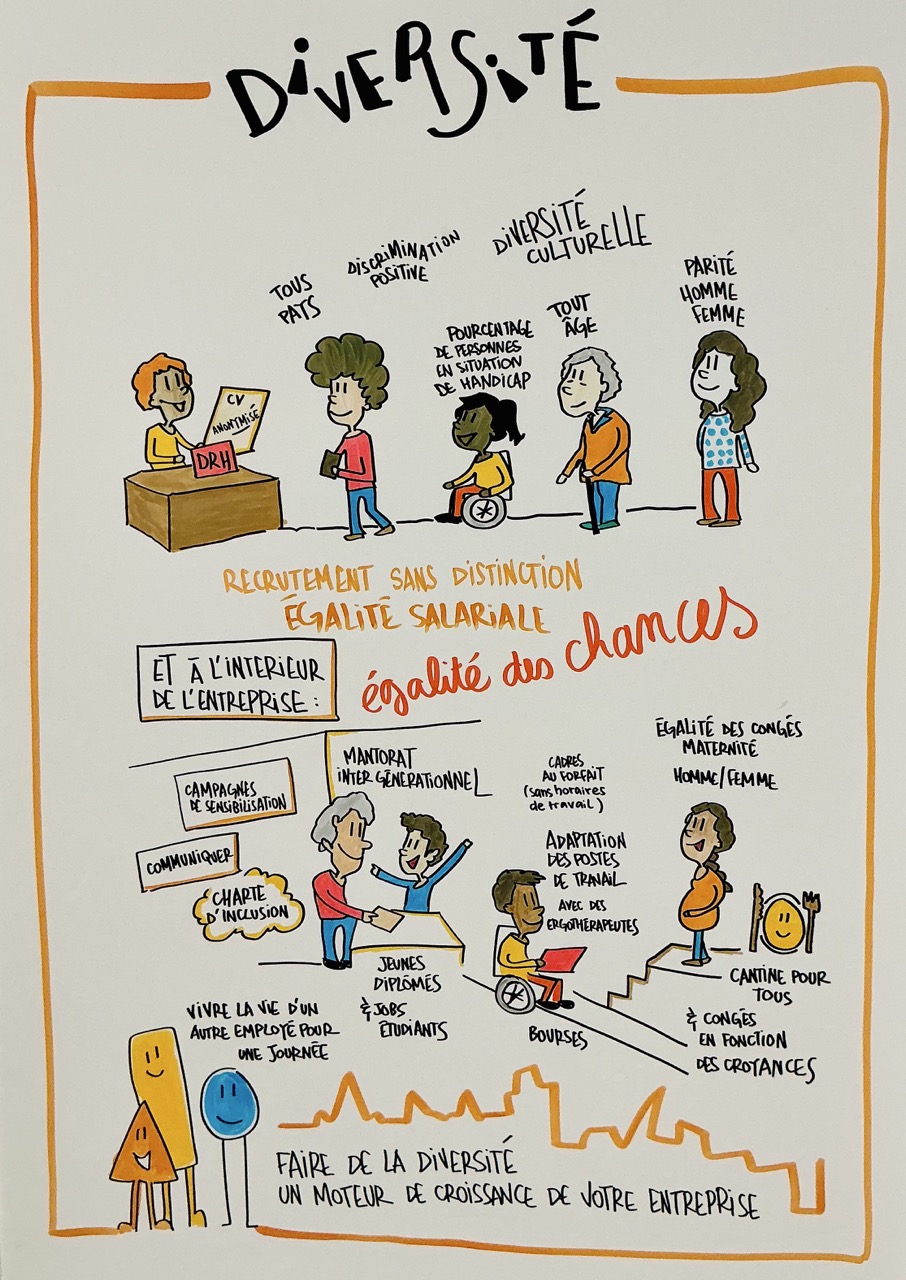 DiVERSiTÉ
TOUS
PAYS
DISCRIMINATION
POSITIVE
DIVERSITÉ
CULTURELLE
POURCENTAGE
DE PERSONNES
EN SITUATION
DE HANDICAP
TOUT
ÂGE
PARITÉ
HOMME
FEMME
CV
ANONYMISÉ
DRH
RECRUTEMENT SANS DISTINCTION
ÉGALITÉ SALARIALE
égalité des chances
ET À L'INTERIEUR
DE L'ENTREPRISE :
CAMPAGNES
DE SENSIBILISATION
COMMUNIQUER
CHARTE
D'INCLUSION
MANTORAT
INTERGÉNÉRATIONNEL
CADRES
AU FORFAIT
(sans horaires
de travail)
ÉGALITÉ DES CONGÉS
MATERNITÉ
HOMME/FEMME
ADAPTATION
DES POSTES
DE TRAVAIL
AVEC DES
ERGOTHÉRAPEUTES
JEUNES
DIPLÔMÉS
& JOBS
ÉTUDIANTS
BOURSES
CANTINE POUR
TOUS
& CONGÉS
EN FONCTION
DES CROYANCES
VIVRE LA VIE D'UN
AUTRE EMPLOYÉ POUR
UNE JOURNÉE
FAIRE DE LA DIVERSITÉ
UN MOTEUR DE CROISSANCE DE VOTRE ENTREPRISE